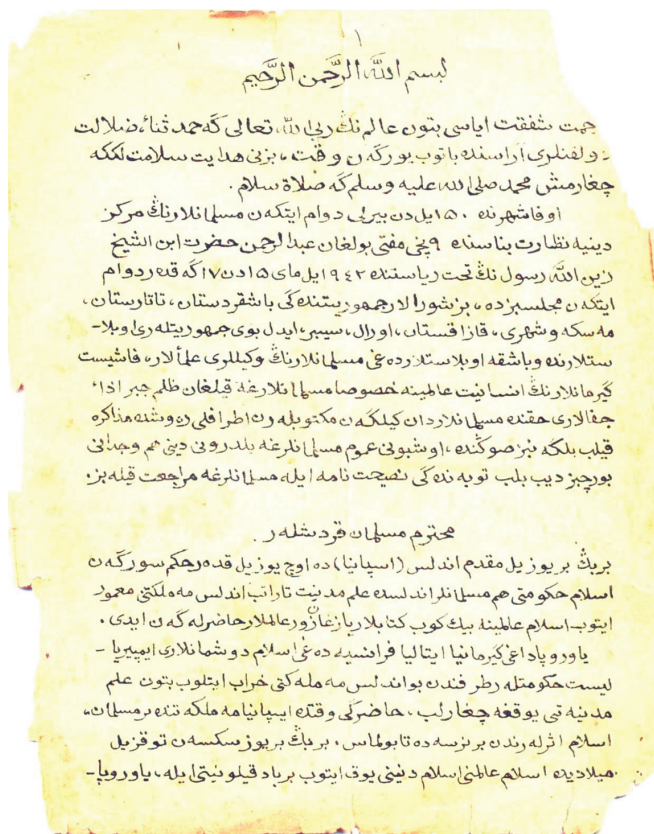 ١
بسم الله الرَّحمن الرَّحيم
جمت شفقت اياسى بتون عالم نڭ ربى الله تعالى گه حمد ثناء، ضلالت
زولفتلرى آراسنده باتوب يورگه ن وقت، بزنى هدايت سلامت لككه
چغارمش محمد صلى الله عليه وسلم گه صلاة سلام.
اوفا شهرنده ١٥٠ يل دن بيرلى دوام ايتكه ن مسلمانلارنڭ مركز
دينيه نظارت بناسنده ٩ نچى مفتى بولغان عبد الرحمن حضرت ابن الشيخ
زين الله رسول نڭ تحت رياستنده ١٩٤٢ ايل ماى ١٥ دن ١٧ گه قدر دوام
ايتكه ن مجلسبزده، بز شورالار جمهوريتنده گى باشقردستان، تاتارستان،
مه سكه و شهرى، قازاقستان، اورال، سيبر، ايدل بوى جمهوريتله رى اوبلا-
ستلارنده و باشقه اوبلاستلارده غى مسلمانلارنڭ وكيللرى علمالار، فاشيست
گيرمانلارنڭ انسانيت عالمينه خصوصا مسلمانلارغه قيلغان ظلم جبر اذاء
جفالارى حقنده مسلمانلاردان كيلگه ن مكتوبله رن اطرافلى رو شده مذاكره
قيلب بلگه نبز صوكنده، اوشبونى عموم مسلمانلرغه بلدرونى دينى هم وجدانى
بورچبز ديب بلب توبه نده گى نصيحت نامه ايله مسلمانلرغه مراجعت قيله بز.
محترم مسلمان قردشله ر.
بر بڭ بر يوز يل مقدم اندلس (اسپانيا) ده اوچ يوز يل قدر حكم سورگه ن
اسلام حكومتى هم مسلمانلر اندلسده علم مدنيت تاراتب اندلس مه ملكتنى معمور
ايتوب اسلام عالمينه بيك كوب كتابلار يازغان زور عالملار حاضرله گه ن ايدى.
ياوروپاداغى گيرمانيا ايتاليا فرانسيه ده غى اسلام دوشمانلارى ايمپيريا-
ليست حكومتله ر طرفندن بو اندلس مه مله كتى خراب ايتلوب بتون علم
مدنيه تى يوقغه چغارلب، حاضرگى وقتده ايسپانيا مه ملكه تنده بر مسلمان،
اسلام اثرله رندن بر نرسه ده تابولماس. بر بڭ بر يوز سكسه ن توقز يل
ميلاديده اسلام عالمنى اسلام دينينى يوق ايتوب برباد قيلو نيتى ايله، ياوروپا-